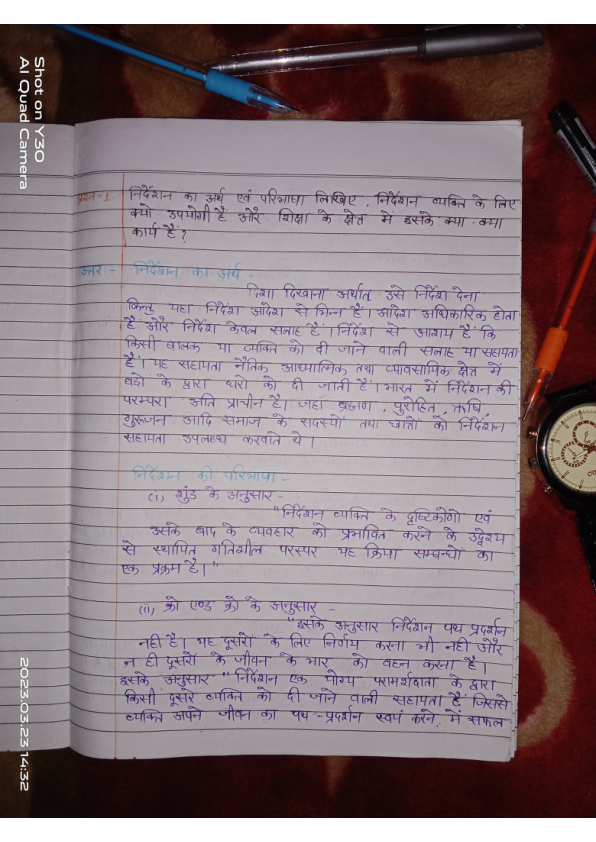 प्रश्न-1 निर्देशन का अर्थ एवं परिभाषा लिखिए, निर्देशन व्यक्ति के लिए
क्यो उपयोगी है और शिक्षा के क्षेत्र में इसके क्या-क्या
कार्य है?
उत्तर:- निर्देशन का अर्थ -
दिशा दिखाना अर्थात् उसे निर्देश देना
किन्तु यहा निर्देश आदेश से भिन्न है। आदेश अधिकारिक होता
है और निर्देश केवल सलाह है। निर्देश से आशय है कि
किसी बालक या व्यक्ति को दी जाने वाली सलाह या सहायता
है। यह सहायता नैतिक आध्यात्मिक तथा व्यावसायिक क्षेत्र में
बडो के द्वारा दी जाती है। भारत में निर्देशन की
परम्परा अति प्राचीन है। जहा ब्रह्मण, पुरोहित, ऋषि,
गुरूजन आदि समाज के सदस्यों तथा छात्रों को निर्देशन
सहायता उपलब्ध करवाते थे।
निर्देशन की परिभाषा -
(i) शुंड के अनुसार -
"निर्देशन व्यक्ति के दृष्टिकोणो एवं
उसके बाद के व्यवहार को प्रभावित करने के उद्देश्य
से स्थापित गतिशील परस्पर यह क्रिया सम्बन्धों का
एक प्रक्रम है।"
(ii) क्रो एण्ड क्रो के अनुसार -
"इसके अनुसार निर्देशन पथ प्रदर्शन
नही है। यह दूसरों के लिए निर्णय करना भी नही और
न ही दूसरों के जीवन के भार को वहन करना है।
इसके अनुसार "निर्देशन एक योग्य परामर्शदाता के द्वारा
किसी दूसरे व्यक्ति को दी जाने वाली सहायता है जिससे
व्यक्ति अपने जीवन का पथ-प्रदर्शन स्वयं करने में सफल
Shot on Y30
AI Quad Camera
2023.03.23 14:32